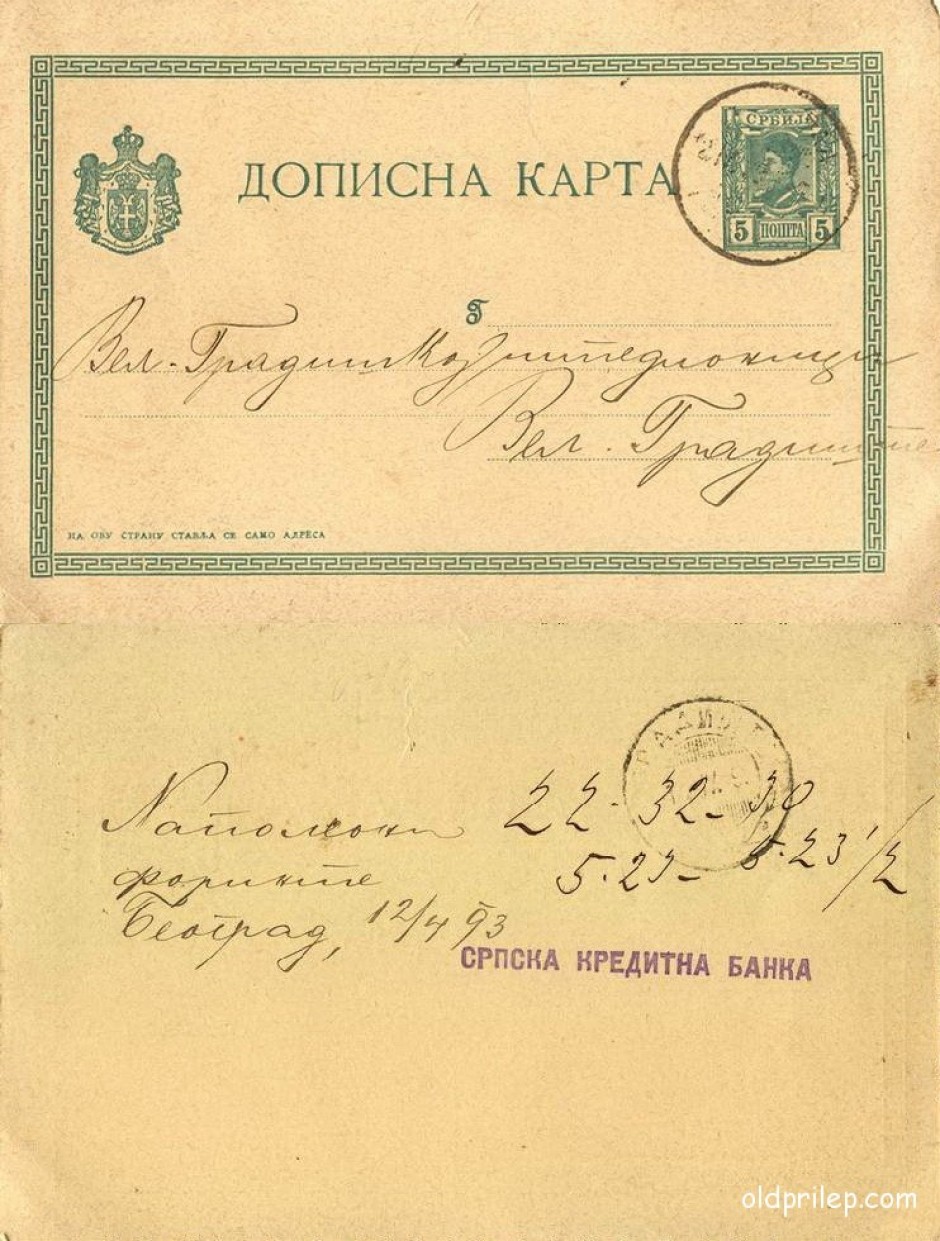 ДОПИСНА КАРТА
СРБИЈА
5 ПОШТА 5
Вел. Градишкој штедионици
Вел. Градиште
НА ОВУ СТРАНУ СТАВЉА СЕ САМО АДРЕСА
Наполеони 22-32-30
форинте 5.23- 5.23 1/2
Београд, 12/4 93
СРПСКА КРЕДИТНА БАНКА
oldprilep.com